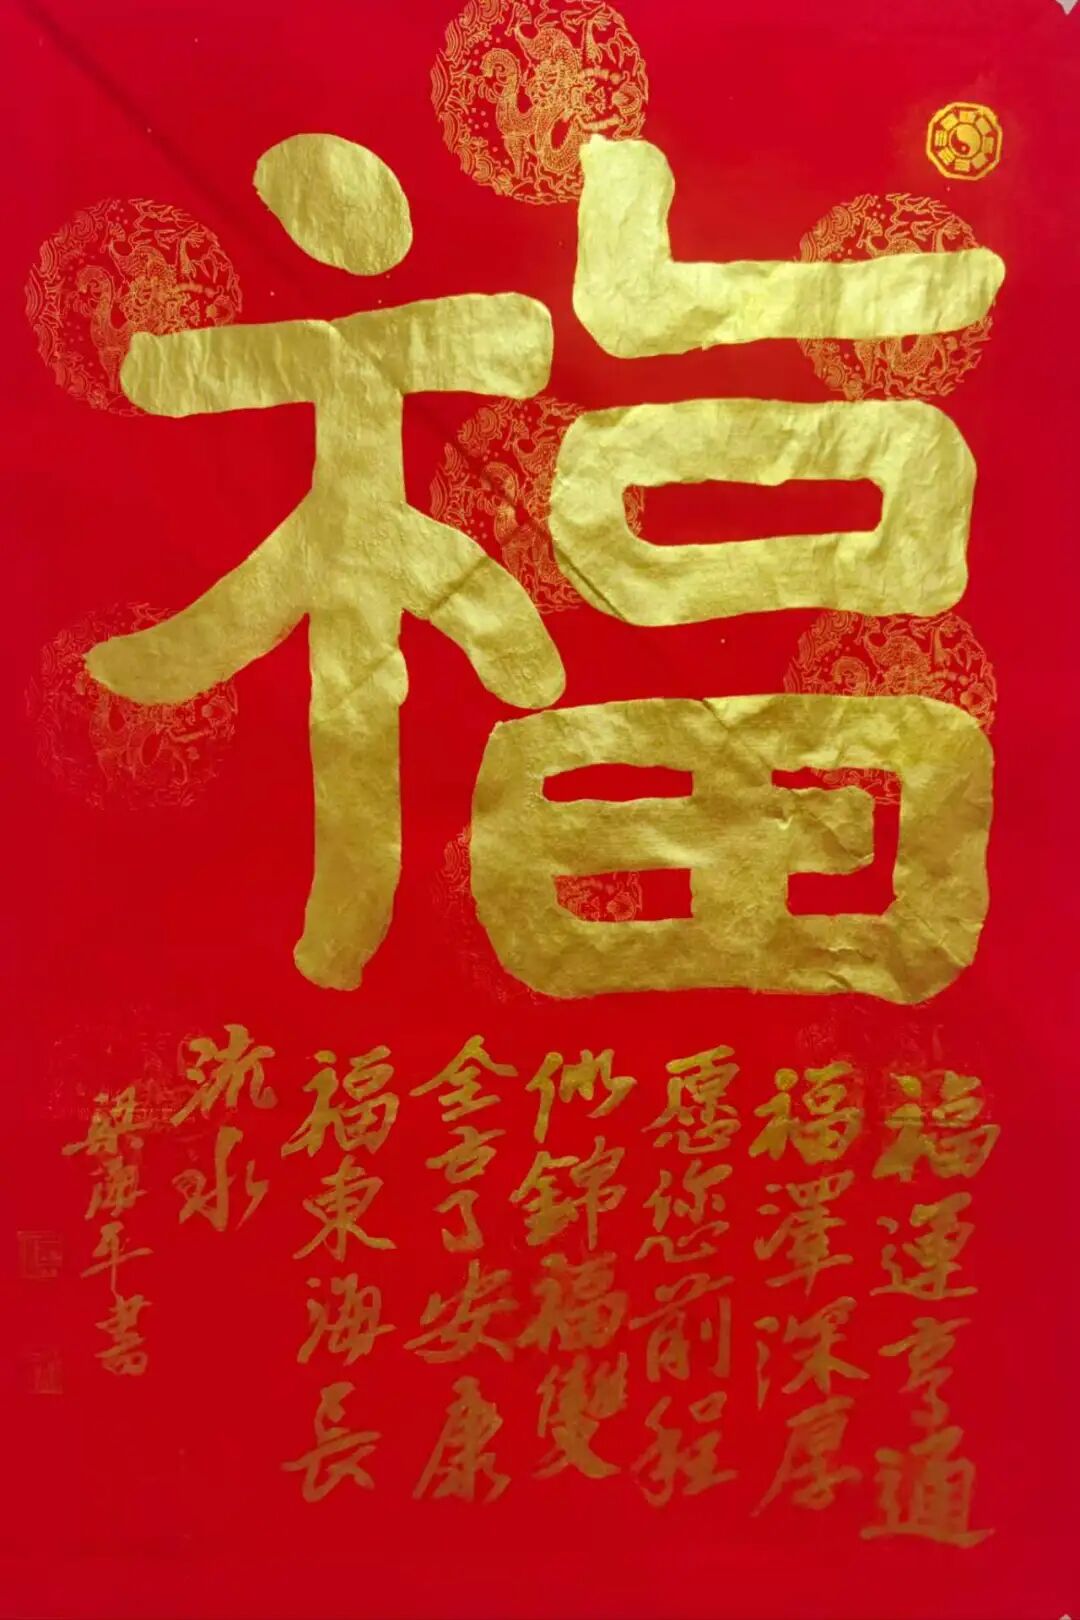 福
福運亨通
福澤深厚
愿您前程
似錦福雙
全亨安康
福東海長
流水
梁海平書